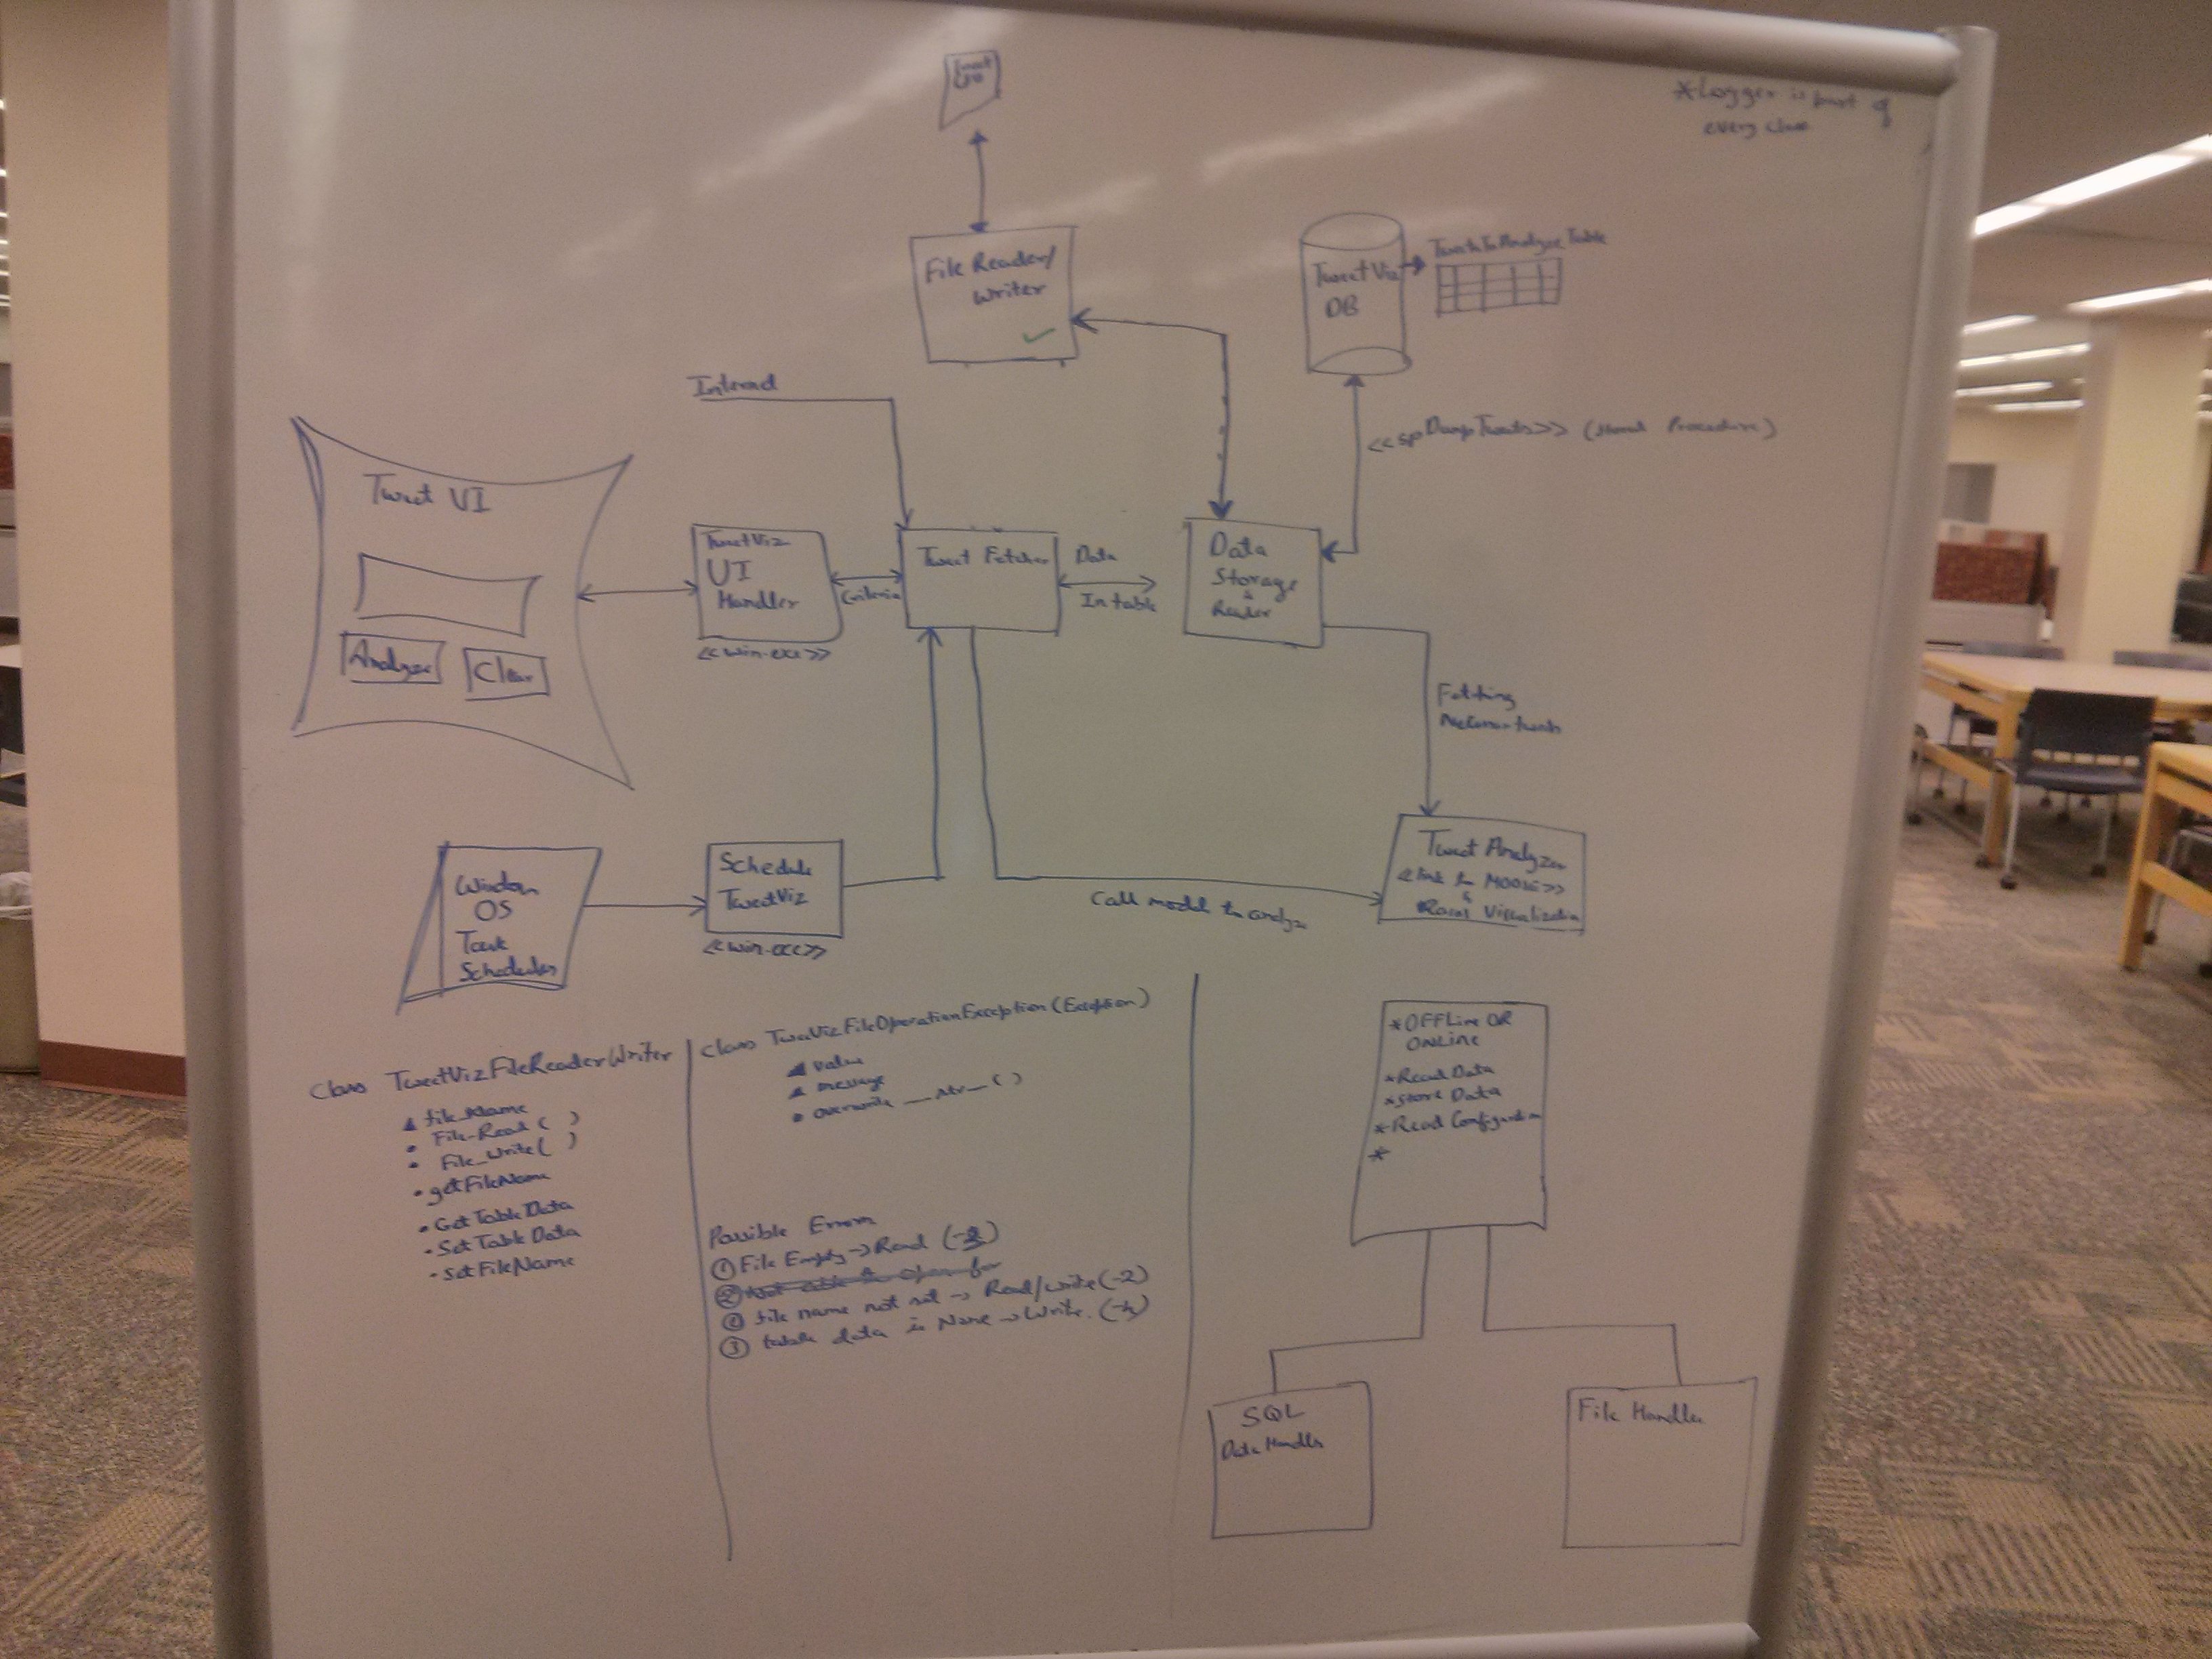 *Logger is part of
every class
Tweet
File Reader/
Writer
TweetViz
DB
TweetsToAnalyze Table
<<spDumpTweets>> (Stored Procedure)
Internet
Tweet UI
Analyze
Clear
TweetViz
UI
Handler
<<win-exe>>
Criteria
Tweet Fetcher
Data
In table
Data
Storage
&
Reader
Fetching
Window
OS
Task
Scheduler
Schedule
TweetViz
<<win-exe>>
Call model to analyze
Tweet Analyzer
<link to MOOSE>>
&
Visualization
Class TweetVizFileReaderWriter
file_Name
File_Read ( )
File_Write ( )
getFileName
GetTableData
SetTableData
setFileName
class TweetVizFileOperationException (Exception)
value
message
overwrite __str__ ( )
Possible Errors
① File Empty → Read
② Not able to open for
② file name not set → Read/write (-2)
③ table data is None → Write.
*OFFLine OR
ONLine
*Read Data
*Store Data
*Read Configuration
*
SQL
Data Handler
File Handler